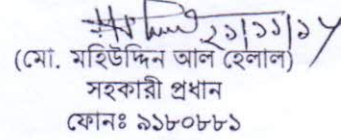 ২১/১১/১৭
(মো. মহিউদ্দিন আল হেলাল)
সহকারী প্রধান
ফোনঃ ৯১৮০৮৮১